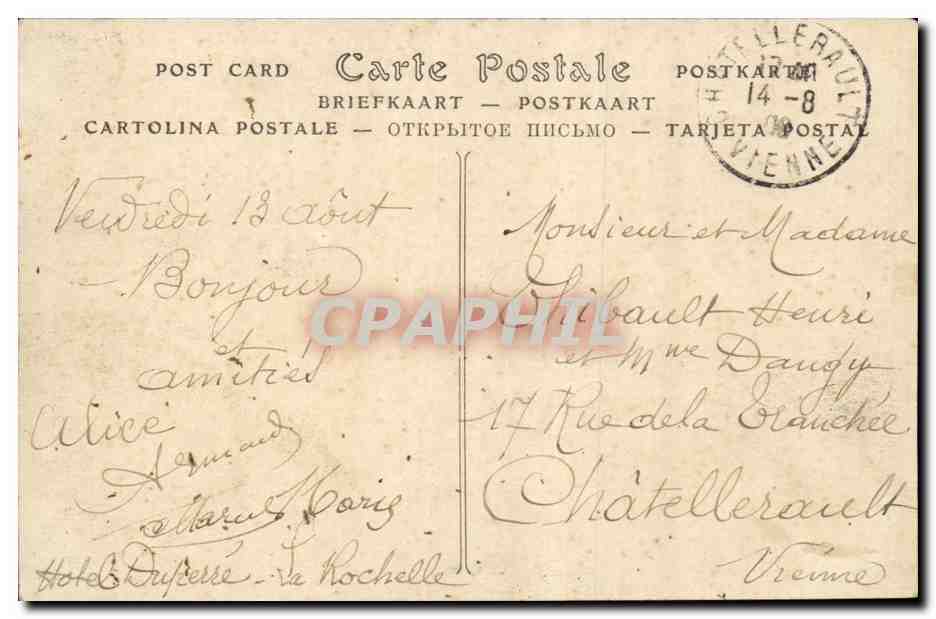 POST CARD Carte Postale POSTKARTE
BRIEFKAART — POSTKAART
CARTOLINA POSTALE — ОТКРЫТОЕ ПИСЬМО — TARJETA POSTAL
CHATELLERAULT
14 - 8
VIENNE
Vendredi 13 août
Bonjour
et
amitiés
Alice
Armand
Marcel Marie
Hotel Duperré - La Rochelle
Monsieur et Madame
Thibault Henri
et Mme Dandy
17 Rue de la Tranchée
Châtellerault
Vienne
CPAPHIL